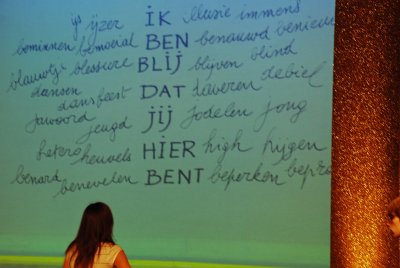 ijs ijzer IK illusie immens
beminnen bemoeial BEN benauwd
blessure BLIJ blijven blind
dansen dansfeest DAT daveren debiel
jawoord jeugd JIJ jodelen jong
hetero heuvels HIER high hijgen
benard benevelen BENT beperken